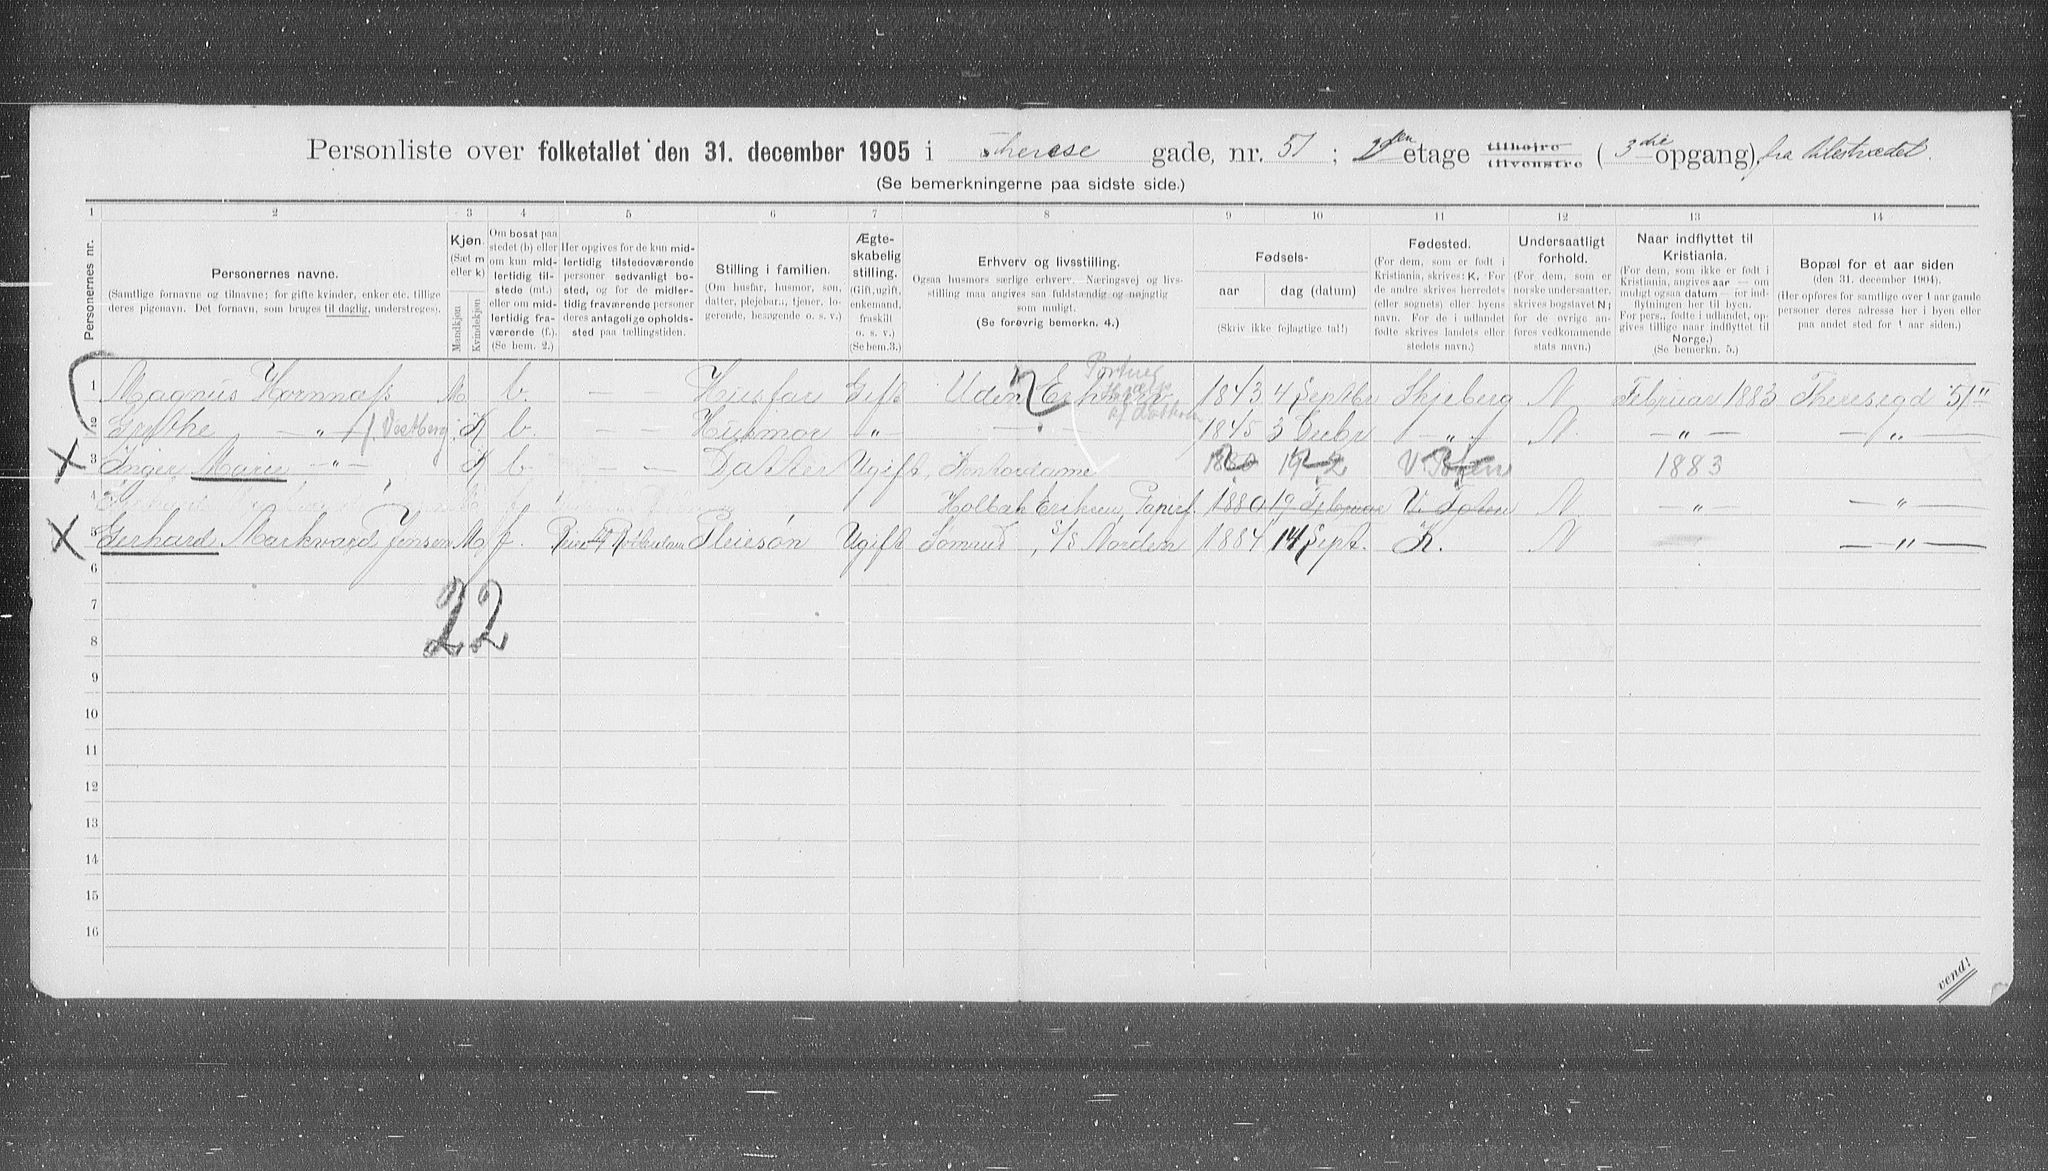 Personliste over folketallet den 31. december 1905 i Therese gade, nr. 51 ; 2den etage tilhøjre tilvenstre ( 3die opgang), fra
(Se bemerkningerne paa sidste side.)
1 2 3 4 5 6 7 8 9 10 11 12 13 14
Personernes nr.
Personernes navne.
(Samtlige fornavne og tilnavne; for gifte kvinder, enker etc. tillige deres pigenavn. Det fornavn, som bruges til daglig, understreges).
Kjøn.
(Sæt m eller k)
Mandkjøn
Kvindekjøn
Om bosat paa stedet (b) eller om kun midlertidig tilstede (mt.) eller om midlertidig fraværende (f.)
(Se bem. 2.)
Her opgives for de kun midlertidig tilstedeværende personer sedvanligt bosted, og for de midlertidig fraværende personer deres antagelige opholdssted paa tællingstiden.
Stilling i familien.
(Om husfar, husmor, søn, datter, plejebar., tjener, logerende, besøgende o. s. v.)
Ægteskabelig stilling.
(Gift, ugift, enkemand, fraskilt o. s. v.)
(Se bem.3.)
Erhverv og livsstilling.
Ogsaa husmors særlige erhverv. Næringsvej og livsstilling maa angives saa fuldstændig og nøjagtig som muligt.
(Se forøvrig bemerkn. 4.)
Fødsels-
aar dag (datum)
(Skriv ikke fejlagtige tal!)
Fødested.
(For dem, som er født i Kristiania, skrives: K. For de andre skrives herredets (eller sognets) eller byens navn. For de i udlandet fødte skrives landets eller stedets navn.)
Undersaatligt forhold.
(For dem, som er norske undersaatter, skrives bogstavet N; for de øvrige anføres vedkommende stats navn.)
Naar indflyttet til Kristiania.
(For dem, som ikke er født i Kristiania, angives aar — om mulig ogsaa datum — for indflytningen her til byen. For pers., fødte i udlandet, opgives tillige naar indflyttet til Norge.)
(Se bemerkn. 5.)
Bopæl for et aar siden
(den 31. december 1904).
(Her opføres for samtlige over 1 aar gamle personer deres adresse her i byen eller paa andet sted for 1 aar siden.)
1 Magnus Hornnæss M. b. — — Husfar Gift Uden Erhverv 1843 4 Septbr Skjeberg N Februar 1883 Theresegd 51
2 Grethe — " — f. Vestberg K b. — — Husmor — " — 1845 3 Decbr — " — N — " — — " —
3 Inger Marie — " — K b — — Datter Ugift, Kontordame 1880 19 2 V. Toten 1883
4 Holbak Eriksen, 1880 19 Februar V. Toten N — " — — " —
5 Gerhard Markvard Jensen M f. Pleiesøn Ugift S/S Norden 1884 14 Sept. K. N — " —
6
22
7
8
9
10
11
12
13
14
15
16
vend!